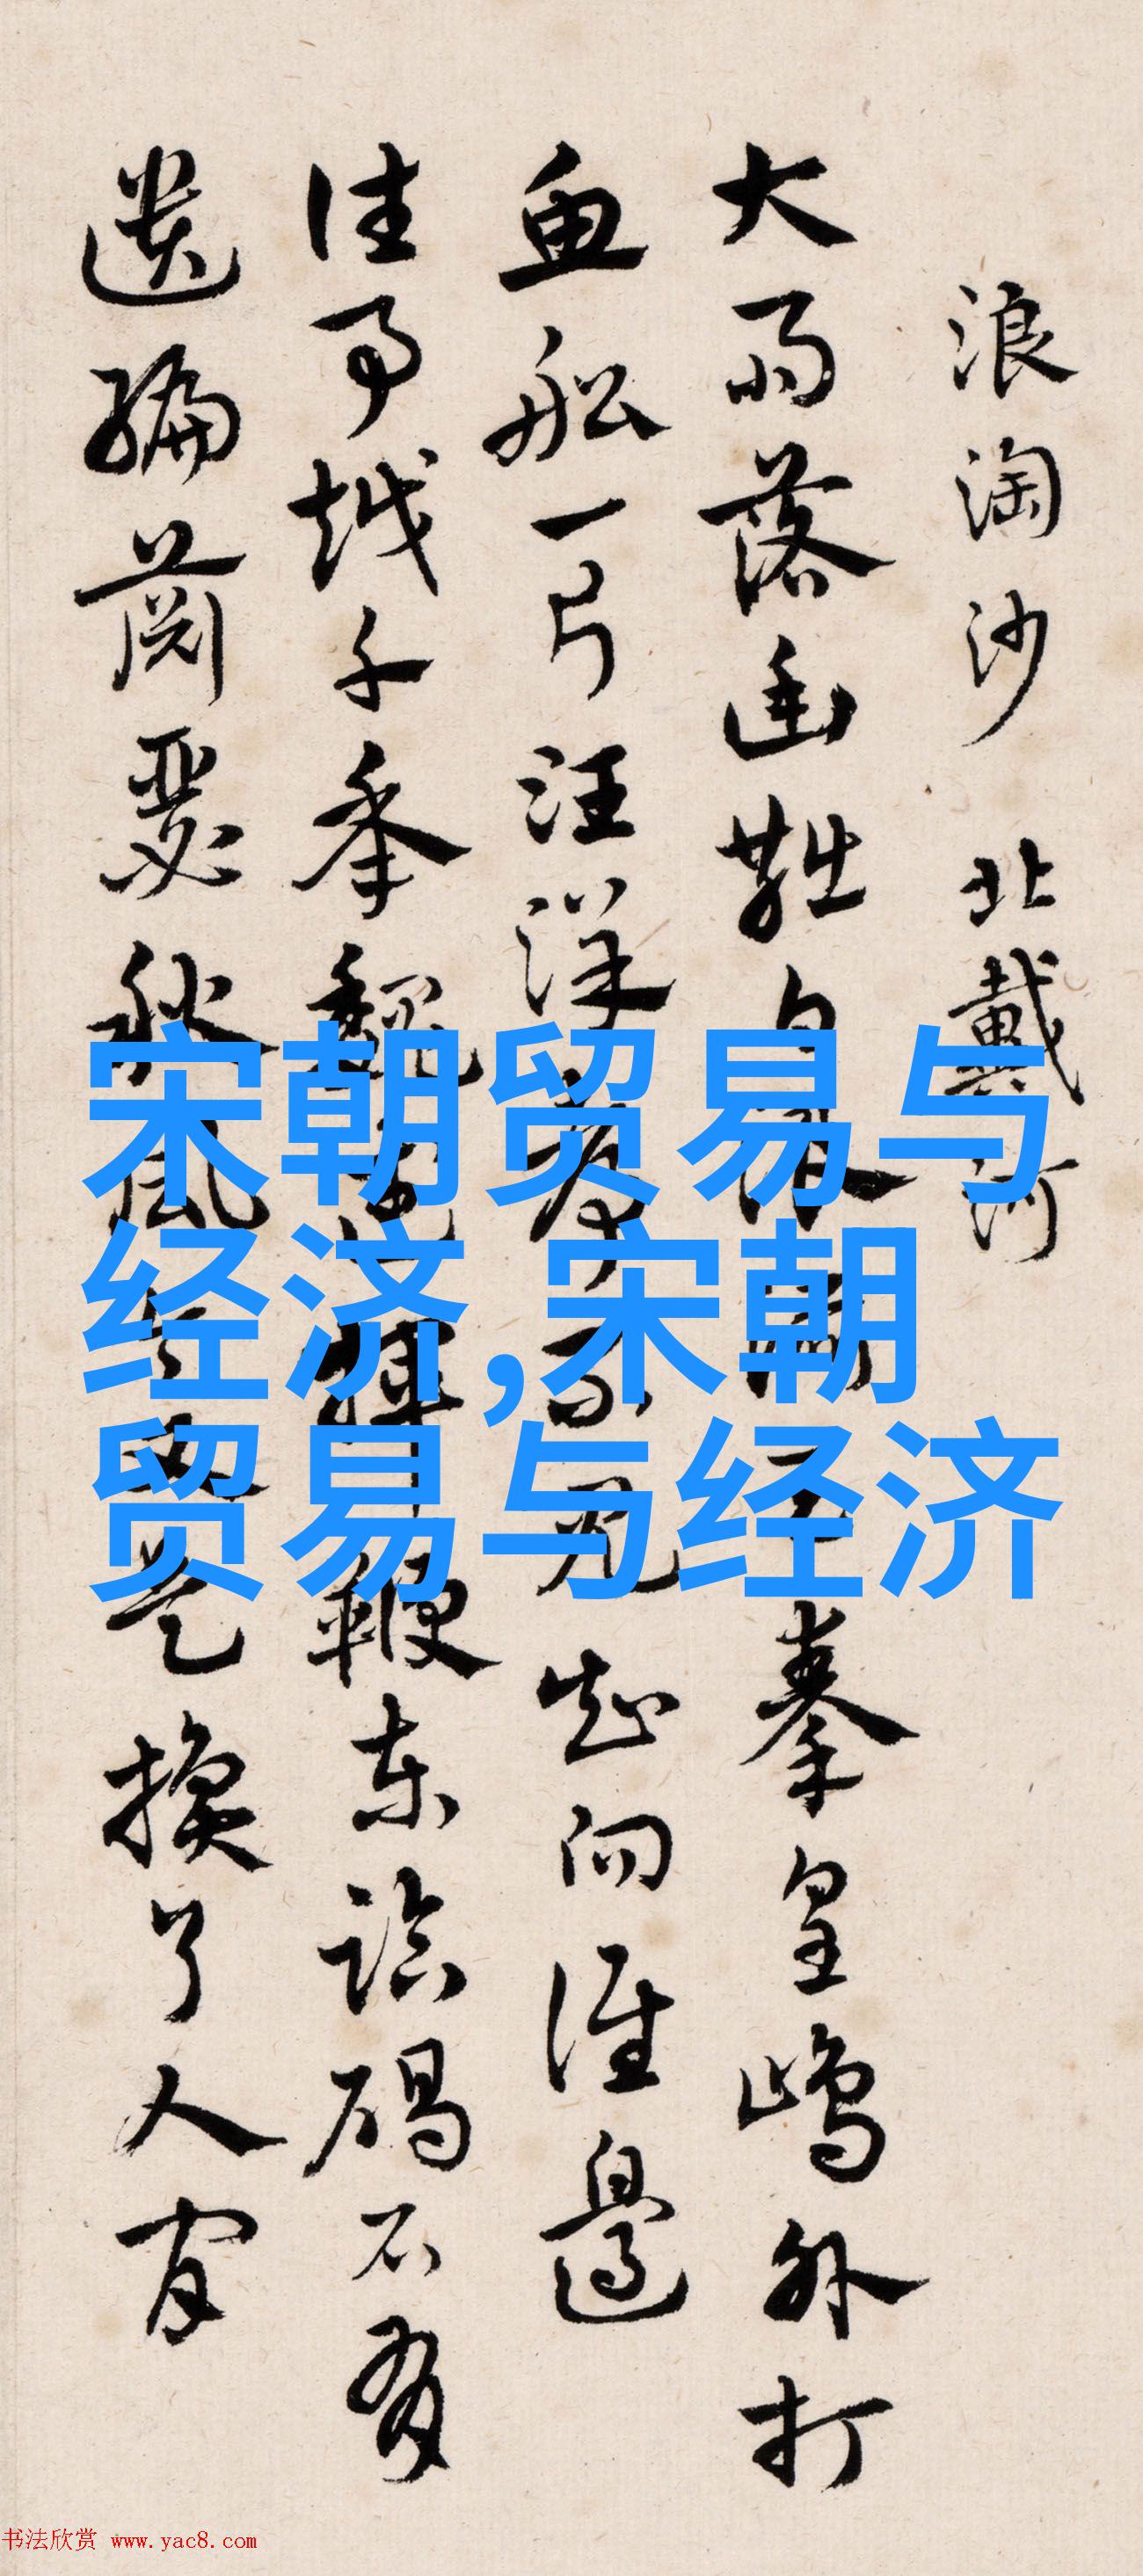 浪淘沙 北戴河
大雨落幽燕白浪滔天秦皇島外打
魚船一片汪洋都不見知向誰邊
往事越千年魏武揮鞭東臨碣石有
遺編蕭瑟秋風今又是換了人間
宋朝贸易与
经济,宋朝
贸易与经济
书法欣赏 www.yac8.com